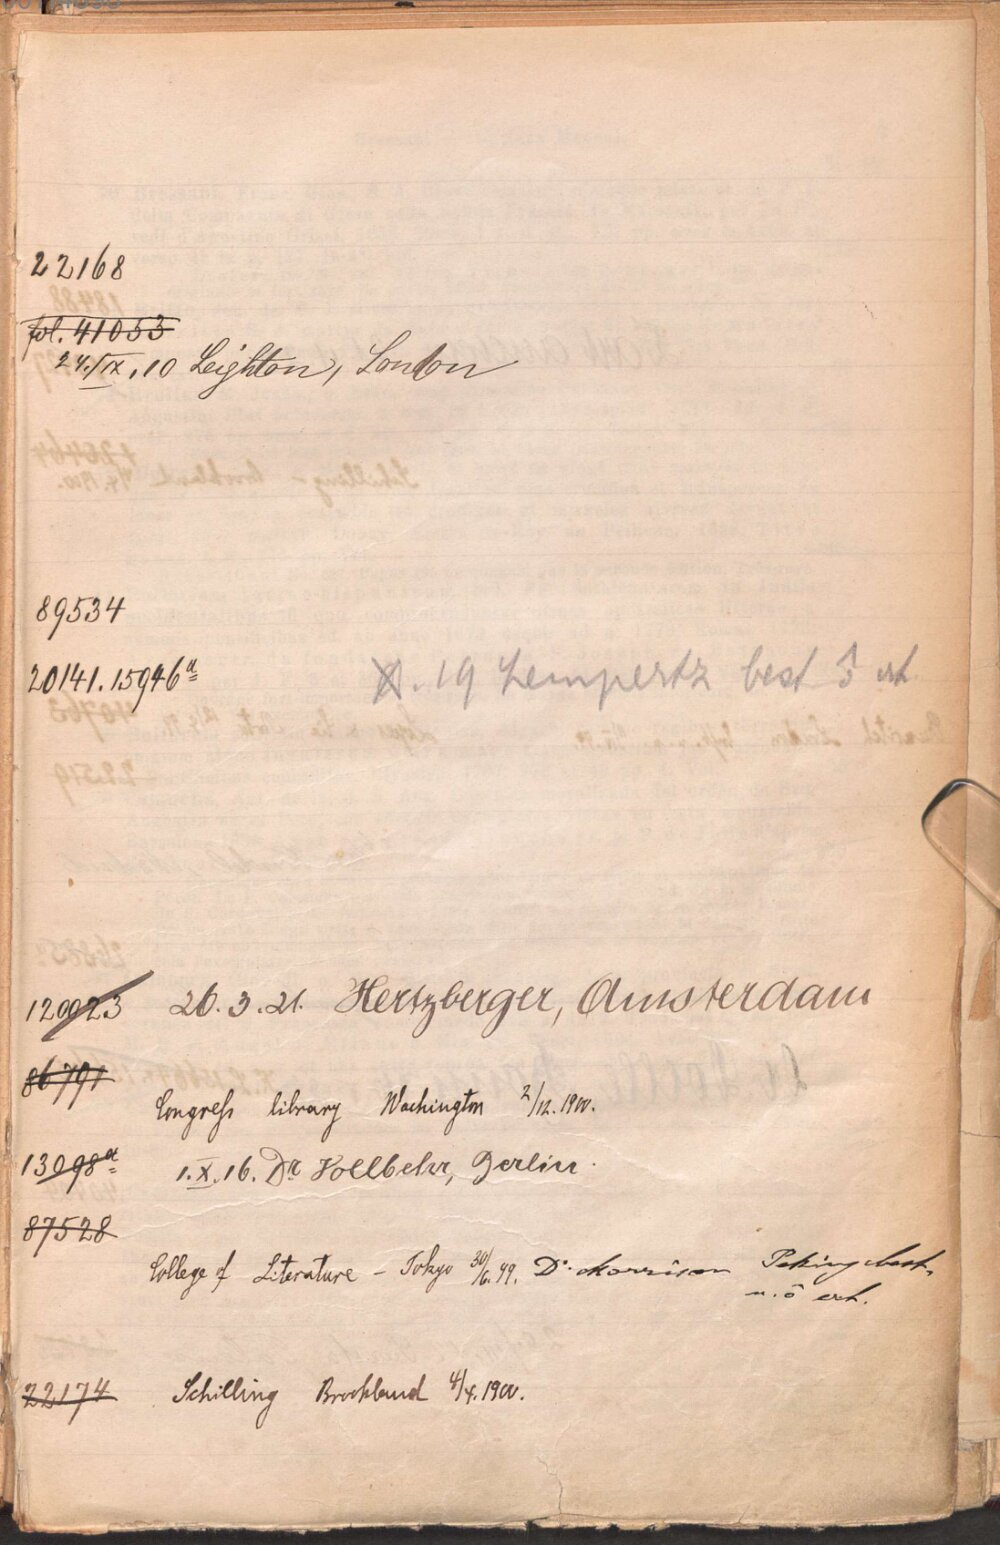 22168
fol. 41053
24.IX.10 Leighton, London
89534
20141. 15946a
X. 19 Lempertz best ô erh.
120023 26.3.21. Hertzberger, Amsterdam
86791
Congress library Washington 2/12. 1900.
13098a 1.X.16. Dr Vollbehr, Berlin.
87528
College of Literature – Tokyo 30/6. 99. Dr. Morrison Peking best.
u. ô erh.
22174 Schilling Brockland 4/4. 1900.